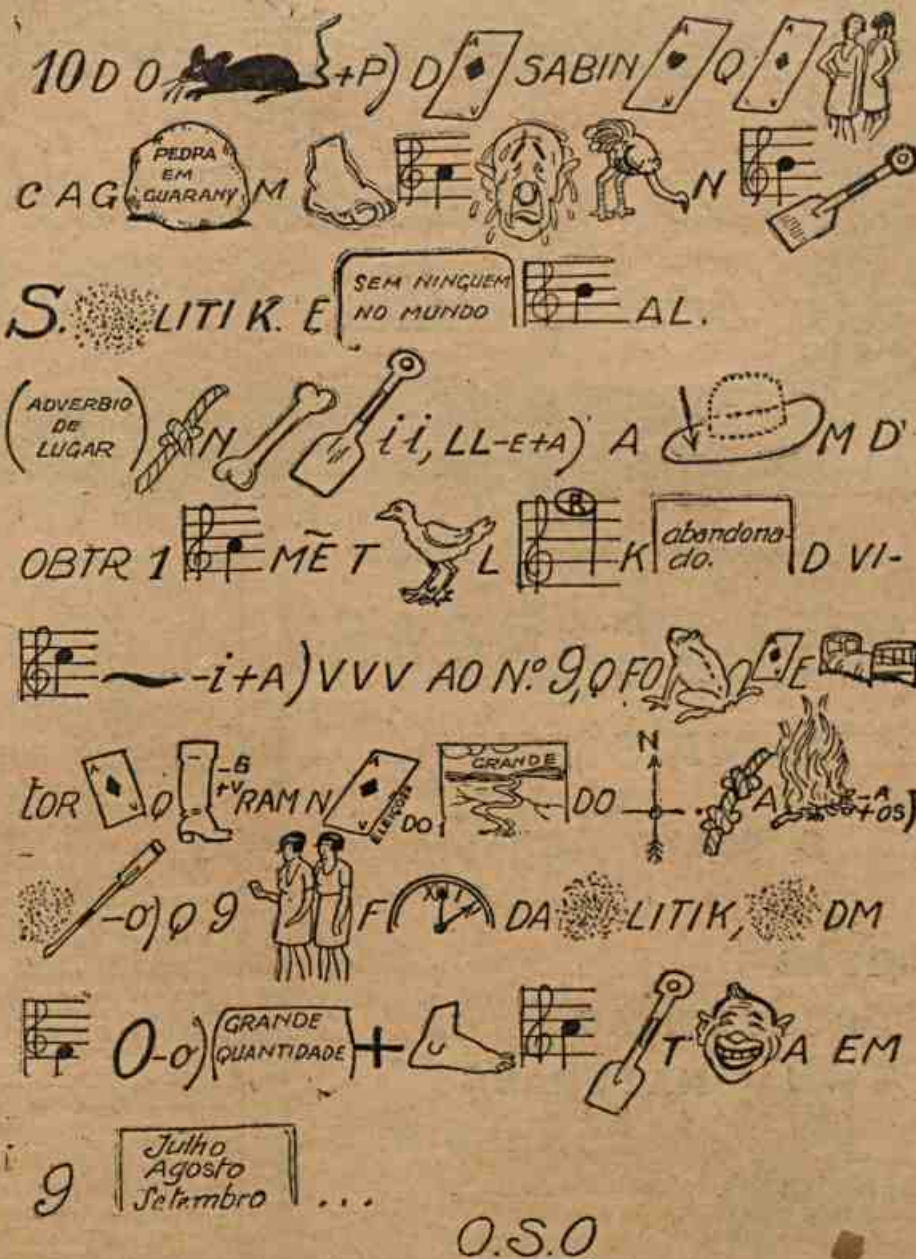 10 D O +P) D A V SABIN A V Q A V
C AG PEDRA EM GUARANY M N
S. LITIK. E SEM NINGUEM NO MUNDO AL.
(ADVERBIO DE LUGAR) N ii, LL-E+A) A M D'
OBTR 1 MẼ T L R K abandonado. D VI-
-i+A) VVV AO N.º 9, Q FO E
tOR A V Q -B +V RAM N A V ELEIÇÕES DO GRANDE DO N A -A +OS)
-O) Q 9 F XII I DA LITIK, DM
O-O) GRANDE QUANTIDADE + T A EM
9 Julho Agosto Setembro ...
O.S.O